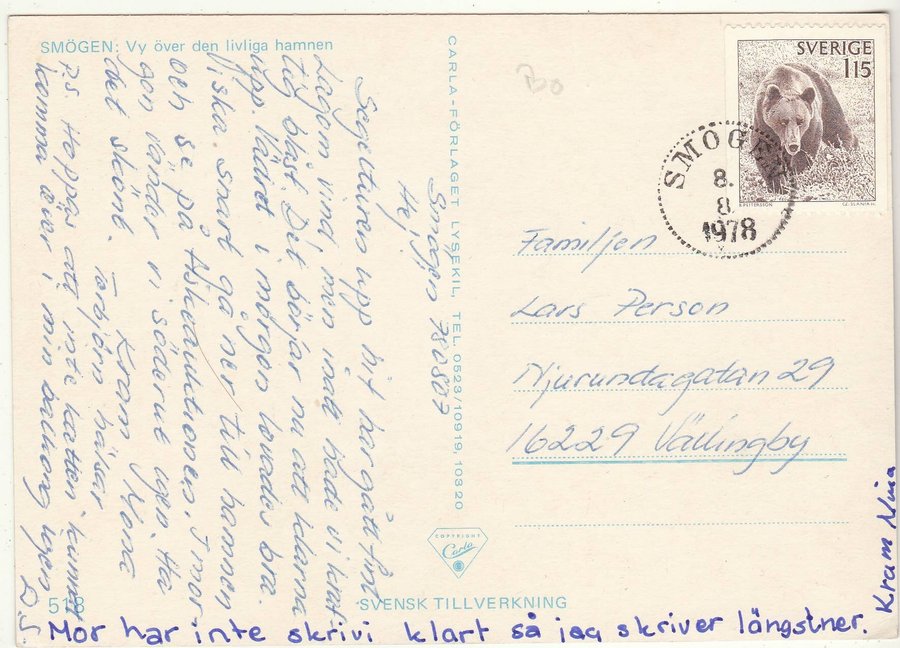 SMÖGEN: Vy över den livliga hamnen
Smögen 780807
Hej,
Segelturen upp hit har gått fint
Lagom vind men inatt hade vi kraf-
tig blåst. Det börjar nu att klarna
upp. Vädret i morgon lovades bra.
fiska. Snart gå ner till hamnen
och se på fiskauktionen. I mor-
gon vänder vi söderut igen. Ha
det skönt.
Kram Mona
Torbjörn hälsar
P.S. Hoppas att inte katten kunnat
komma över i min balkong igen D.S
CARLA-FÖRLAGET LYSEKIL, TEL 0523/10919, 10320
COPYRIGHT
Carla
Bo
SVERIGE
115
SMÖGEN
8.
8.
1978
Familjen
Lars Person
Njurundagatan 29
16229 Vällingby
518
SVENSK TILLVERKNING
Mor har inte skrivi klart så jag skriver längstner.
Kram Nina